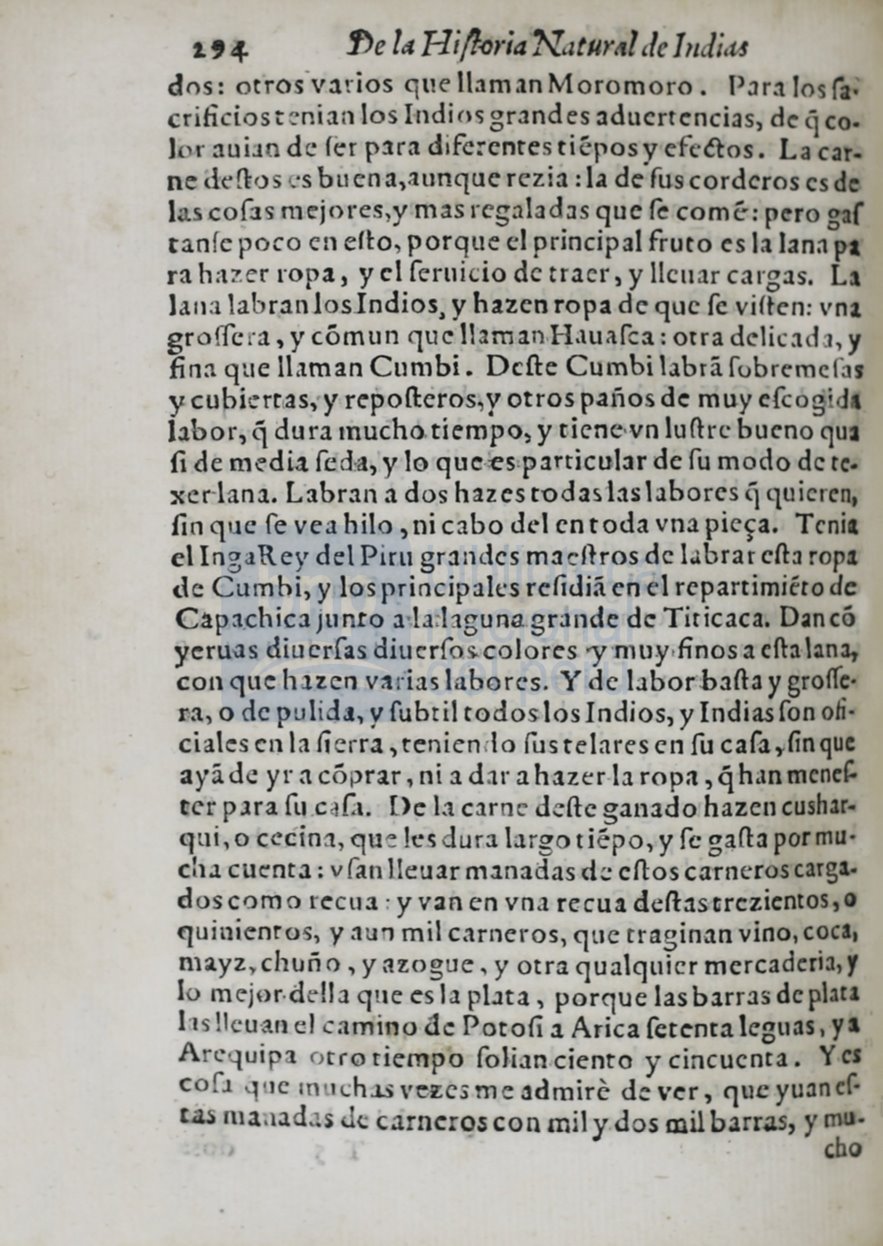 294 De la Hiſtoria Natural de Indias
dos: otros varios que llaman Moromoro. Para los ſa-
crificios tenian los Indios grandes aduertencias, de q̃ co-
lor auian de ſer para diferentes tiẽpos y efectos. La car-
ne deſtos es buena, aunque rezia: la de ſus corderos es de
las coſas mejores, y mas regaladas que ſe comẽ: pero gaſ
tanſe poco en eſto, porque el principal fruto es la lana pa
ra hazer ropa, y el ſeruicio de traer, y lleuar cargas. La
lana labran los Indios, y hazen ropa de que ſe viſten: vna
groſſera, y cõmun que llaman Hauaſca: otra delicada, y
fina que llaman Cumbi. Deſte Cumbi labrã ſobremeſas
y cubiertas, y repoſteros, y otros paños de muy eſcogida
labor, q̃ dura mucho tiempo, y tiene vn luſtre bueno qua
ſi de media ſeda, y lo que es particular de ſu modo de te-
xer lana. Labran a dos hazes todas las labores q̃ quieren,
ſin que ſe vea hilo, ni cabo del en toda vna pieça. Tenia
el Inga Rey del Piru grandes maeſtros de labrar eſta ropa
de Cumbi, y los principales reſidiã en el repartimiẽto de
Capachica junto a la laguna grande de Titicaca. Dan cõ
yeruas diuerſas diuerſos colores y muy finos a eſta lana,
con que hazen varias labores. Y de labor baſta y groſſe-
ra, o de pulida, y ſubtil todos los Indios, y Indias ſon ofi-
ciales en la ſierra, teniendo ſus telares en ſu caſa, ſin que
ayã de yr a cõprar, ni a dar a hazer la ropa, q̃ han meneſ-
ter para ſu caſa. De la carne deſte ganado hazen cushar-
qui, o cecina, que les dura largo tiẽpo, y ſe gaſta por mu-
cha cuenta: vſan lleuar manadas de eſtos carneros carga-
dos como recua: y van en vna recua deſtas trezientos, o
quinientos, y aun mil carneros, que traginan vino, coca,
mayz, chuño, y azogue, y otra qualquier mercaderia, y
lo mejor della que es la plata, porque las barras de plata
las lleuan el camino de Potoſi a Arica ſetenta leguas, y a
Arequipa otro tiempo ſolian ciento y cincuenta. Y es
coſa que muchas vezes me admirè de ver, que yuan eſ-
tas manadas de carneros con mil y dos mil barras, y mu-
cho